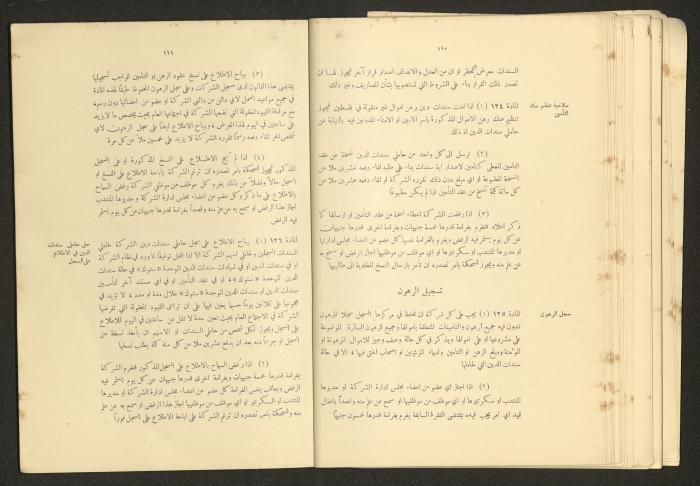 ١١٠
السندات معرض للخطر او ان من العدل والانصاف اصدار قرار آخر فيجوز لها ان
تصدر ذلك القرار بناء على الشروط التي تستصوبها بشأن المصاريف وغير ذلك
صلاحية تنظيم صك التأمين
المادة ١٢٤ (١) اذا امنت سندات دين برهن اموال غير منقولة في فلسطين فيجوز
تنظيم صك رهن الاموال المذكورة باسم الامين او الامناء المدونين فيه بالنيابة عن
حاملي سندات الدين اذ ذاك
(٢) ترسل الى كل واحد من حاملي سندات الدين نسخة عن عقد
التأمين المعطى كتأمين لاصدار اية سندات بناء على طلبه لقاء دفعه عشرين ملا عن
النسخة المطبوعة او اي مبلغ دون ذلك تقرره الشركة او لقاء دفعه عشرين ملا عن
كل مائة كلمة نسخ من عقد التأمين اذا لم يكن مطبوعاً
(٣) اذا رفضت الشركة اعطاء نسخة من عقد التأمين او ارسالها كما
ذكر اعلاه فتغرم بغرامة قدرها خمسة جنيهات وبغرامة اخرى قدرها جنيهان
عن كل يوم يستمر فيه الرفض ويغرم بالغرامة نفسها كل عضو من اعضاء مجلس ادارتها
او مديرها المنتدب او سكرتيرها او اي موظف من موظفيها اجاز الرفض او سمح به
عن علم منه ويجوز للمحكمة بامر تصدره ان تأمر بارسال النسخ المطلوبة الى طالبيها
تسجيل الرهون
سجل الرهون
المادة ١٢٥ (١) يجب على كل شركة ان تحتفظ في مركزها المسجل سجلا للرهون
تدون فيه جميع الرهون والتأمينات المتعلقة باموالها وجميع الرهون السائرة الموضوعة
على مشروعها او على اموالها ويذكر في كل حالة وصف وجيز للاموال المرهونة او
المؤمنة ومبلغ الرهن او التأمين واسماء المرتهنين او اصحاب الحق فيها الا في حالة
سندات الدين التي لحاملها
(٢) اذا اجاز اي عضو من اعضاء مجلس ادارة الشركة او مديرها
المنتدب او سكرتيرها او اي موظف من موظفيها او سمح عن علم منه وقصداً باغفال
قيد اي امر يجب قيده بمقتضى الفقرة السابقة يغرم بغرامة قدرها خمسون جنيهاً
١١١
(٣) يباح الاطلاع على نسخ عقود الرهن او التأمين الواجب تسجيلها
بمقتضى هذا القانون لدى مسجل الشركات وعلى سجل الرهون المحفوظ طبقاً لهذه المادة
في جميع مواعيد العمل لاي دائن من دائني الشركة او عضو من اعضائها بدون رسم،
مع مراعاة القيود المعقولة التي تضعها الشركة في اجتماعها العام بحيث يخصص ما لا يزيد
على ساعتين في اليوم لهذا الغرض، ويباح الاطلاع ايضاً على سجل الرهون لاي
شخص آخر لقاء دفعه رسماً تقرره الشركة لا يزيد على خمسين ملا عن كل مرة
(٤) اذا لم يُبح الاطلاع على النسخ المذكورة او على السجل
المذكور فيجوز للمحكمة بامر تصدره ان ترغم الشركة باباحة الاطلاع على النسخ او
السجل حالاً وفضلاً عن ذلك يغرم كل موظف من موظفي الشركة رفض السماح
بالاطلاع على ما ذكر وكل عضو من اعضاء مجلس ادارة الشركة ومديرها المنتدب
اجاز هذا الرفض او سمح به عن علم منه وقصداً بغرامة قدرها جنيهان عن كل يوم يستمر
فيه الرفض
حق حاملي سندات الدين في الاطلاع على السجل
المادة ١٢٦ (١) يباح الاطلاع على سجل حاملي سندات دين الشركة لحاملي
السندات المسجلين وحاملي اسهم الشركة الا اذا اقفل توفيقاً لما ورد في نظام الشركة
او في سندات الدين او في شهادات سندات الدين الموحدة «ستوك» في حالة سندات
الدين الموحدة «ستوك» او في عقد التأمين او في اي مستند آخر لتأمين
سندات الدين او سندات الدين الموحدة «ستوك» خلال مدة او مدد لا تزيد في
مجموعها على ثلاثين يوماً حسبما يعين فيها على ان تراعى القيود المعقولة التي تفرضها
الشركة في الاجتماع العام بحيث تعين مدة لا تقل عن ساعتين في اليوم للاطلاع
على السجل ويجوز لكل شخص من حاملي السندات او الاسهم ان يأخذ نسخة عن
السجل او جزءاً منه بعد ان يدفع عشرين ملا عن كل مئة كلمة يطلب نسخها
(٢) اذا رُفض السماح بالاطلاع على السجل المذكور فتغرم الشركة
بغرامة قدرها خمسة جنيهات وبغرامة اخرى قدرها جنيهان عن كل يوم يستمر فيه
الرفض ويعاقب بنفس الغرامة كل عضو من اعضاء مجلس ادارة الشركة او مديرها
المنتدب او السكرتير او اي موظف من موظفيها اجاز هذا الرفض او سمح به عن علم
منه وللمحكمة بامر تصدره ان ترغم الشركة على اباحة الاطلاع على السجل فوراً